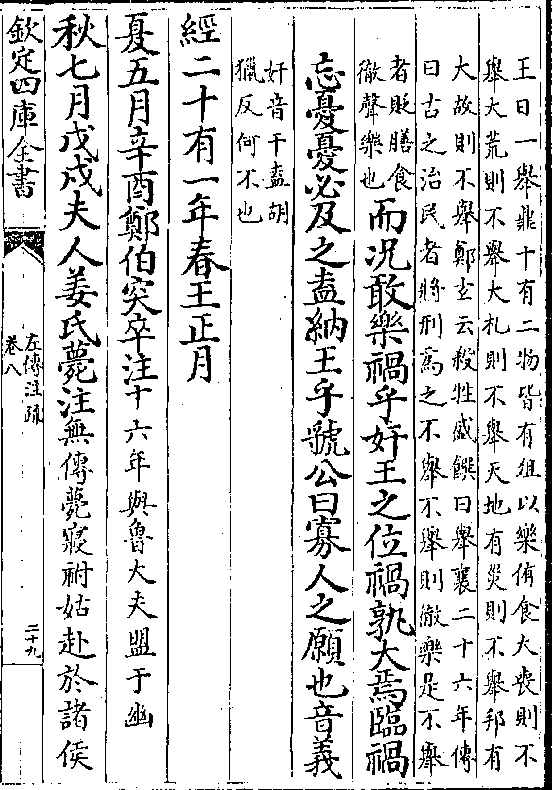 王日一舉鼎十有二物皆有俎以樂侑食大喪則不
舉大荒則不舉大札則不舉天地有災則不舉邦有
大故則不舉鄭玄云殺牲盛饌曰舉襄二十六年傳
曰古之治民者將刑爲之不舉不舉則徹樂是不舉
者貶膳食
徹聲樂也
而况敢樂禍乎奸王之位禍孰大焉臨禍
忘憂憂必及之盍納王乎虢公曰寡人之願也音義
奸音干盍胡
獵反何不也
經二十有一年春王正月
夏五月辛酉鄭伯突卒注十六年與魯大夫盟于幽
秋七月戊戍夫人姜氏薨注無傳薨寢祔姑赴於諸侯
欽定四庫全書
左傳注疏
卷八
二十九